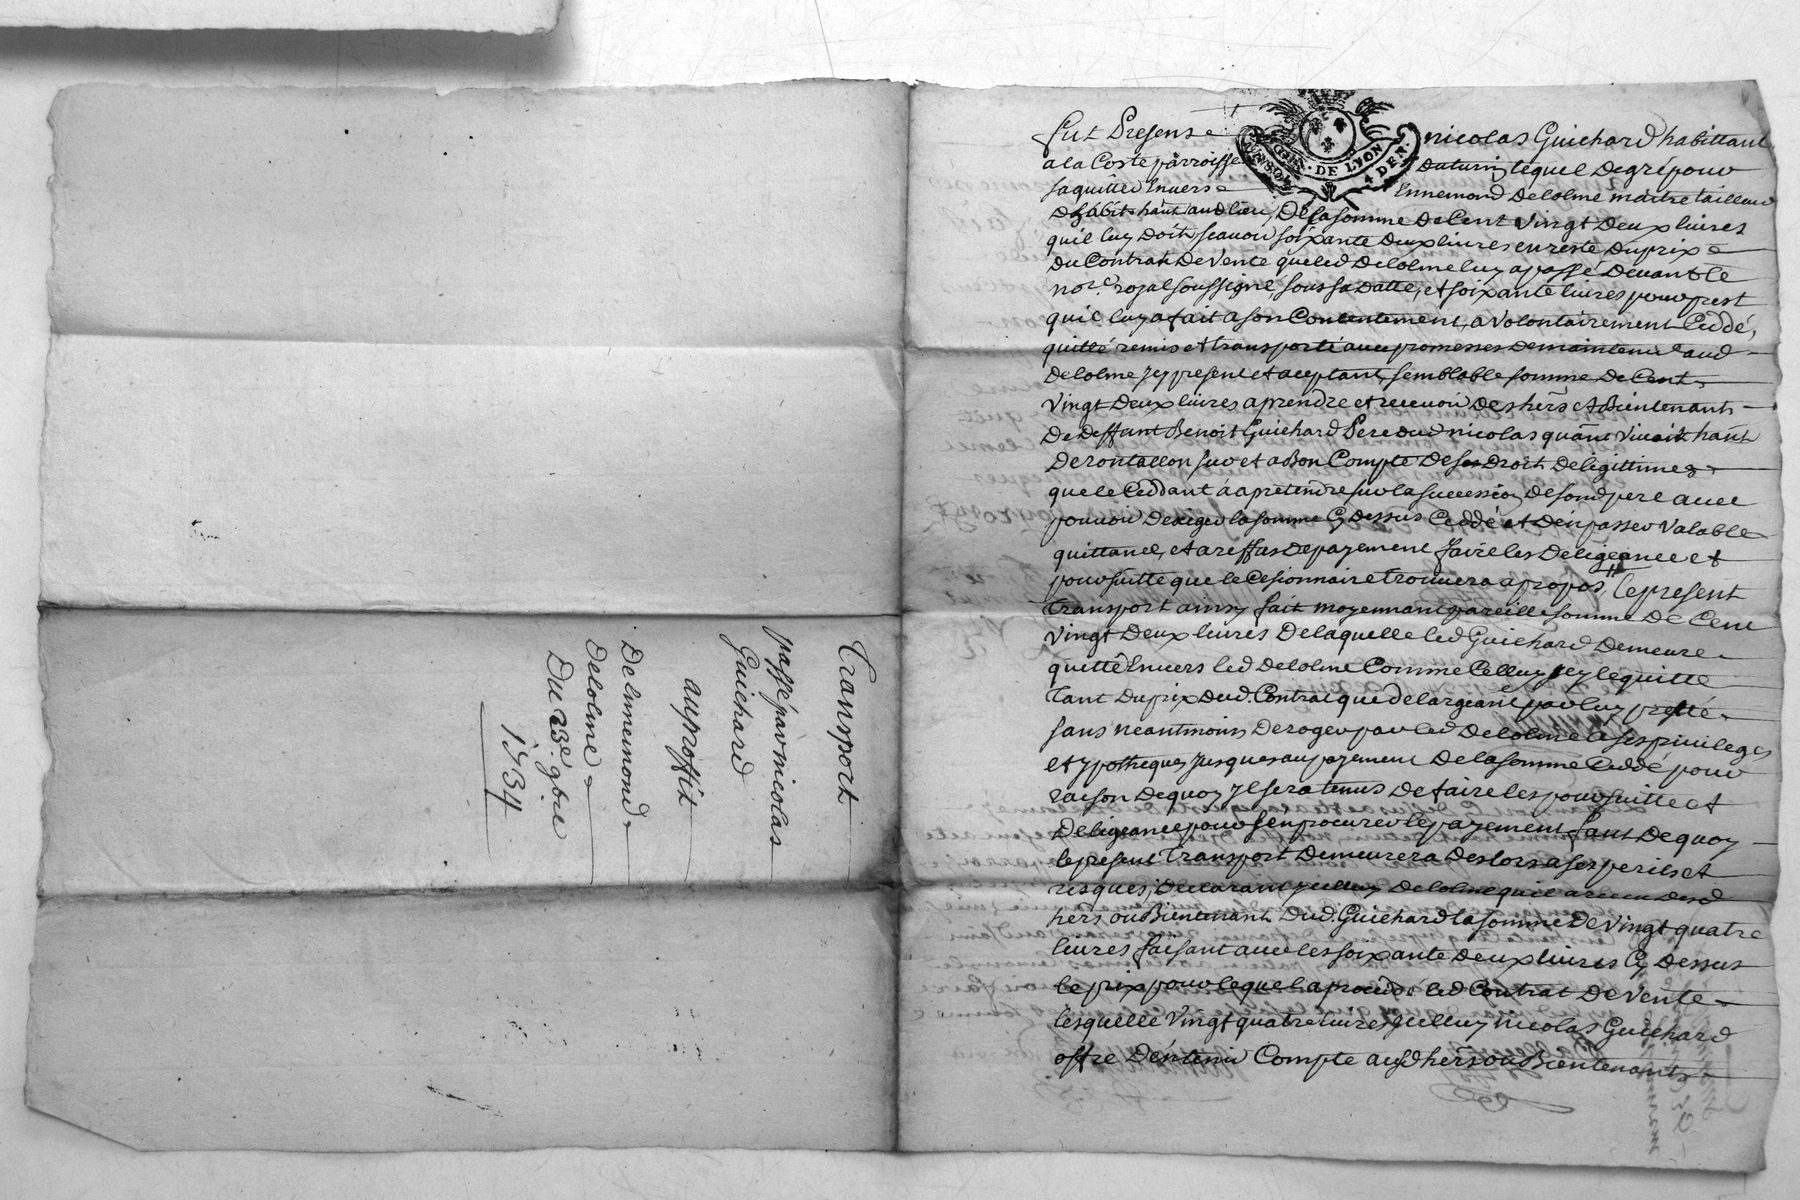 Transport
passé par nicolas
Guichard
au proffit
De Lennemond
Delolme
Du 23e. 9bre
1734
GEN. DE LYON
4 DEN.
Fut Presens nicolas Guichard habittant
a la Coste parroisse Daturin lequel De gré pour
saquitter Envers Ennemond Delolme maitre tailleur
D'habits hant aud lieu, De la somme De Cent Vingt Deux livres
quil luy Doit scavoir soixante Deux livres en reste Du prix
Du Contrat De Vente que led Delolme luy a passé Devant le
nore. royal soussigné, sous sa Datte, et soixante livres pour prest
quil luy a fait a son Contentement, a Volontairement Ceddé,
quitté remis et transporté avec promesses De maintenir aud
Delolme Jcy present et aceptant, semblable somme De Cent
Vingt Deux livres a prendre et recevoir Des hers et Bientenants
De Deffunt Benoit Guichard Pere dud nicolas quant vivoit hant
De rontallon sur et a Bon Compte De ses Droit De legittimes
que le Ceddant á a pretendre sur la succession de sond pere avec
pouvoir Dexiger la somme Cy Dessus Ceddé et D'en passer Valable
quittance, et a reffus De payement faire les Deligeance et
poursuitte que le Cesionnaire trouvera a propos, Le present
Transport ainsy fait moyennant pareille somme De Cent
Vingt Deux livres De laquelle led Guichard Demeure
quitte Envers led Delolme Comme Celluy Jcy le quitte
Tant Du prix Dud. Contrat que de largeant par luy presté
sans neantmoins Deroger par led Delolme a ses privileges
et ypotheques Jusques au payement De la somme Ceddé pour
raison De quoy Jl sera tenus De faire les poursuitte et
Deligeance pour s'en procurer le payement faut De quoy
le present Transport Demeurera Des lors a ses perils et
risques, Declarant Jcelluy Delolme quil a receu Desd
hers ou Bientenants Dud. Guichard la somme De Vingt quatre
livres faisant avec les soixante Deux livres Cy Dessus
le prix pour lequel a procédé led Contrat De Vente
lesquelle Vingt quatre livres Jcelluy nicolas Guichard
offre D'en tenir Compte ausd hers ou Bientenants